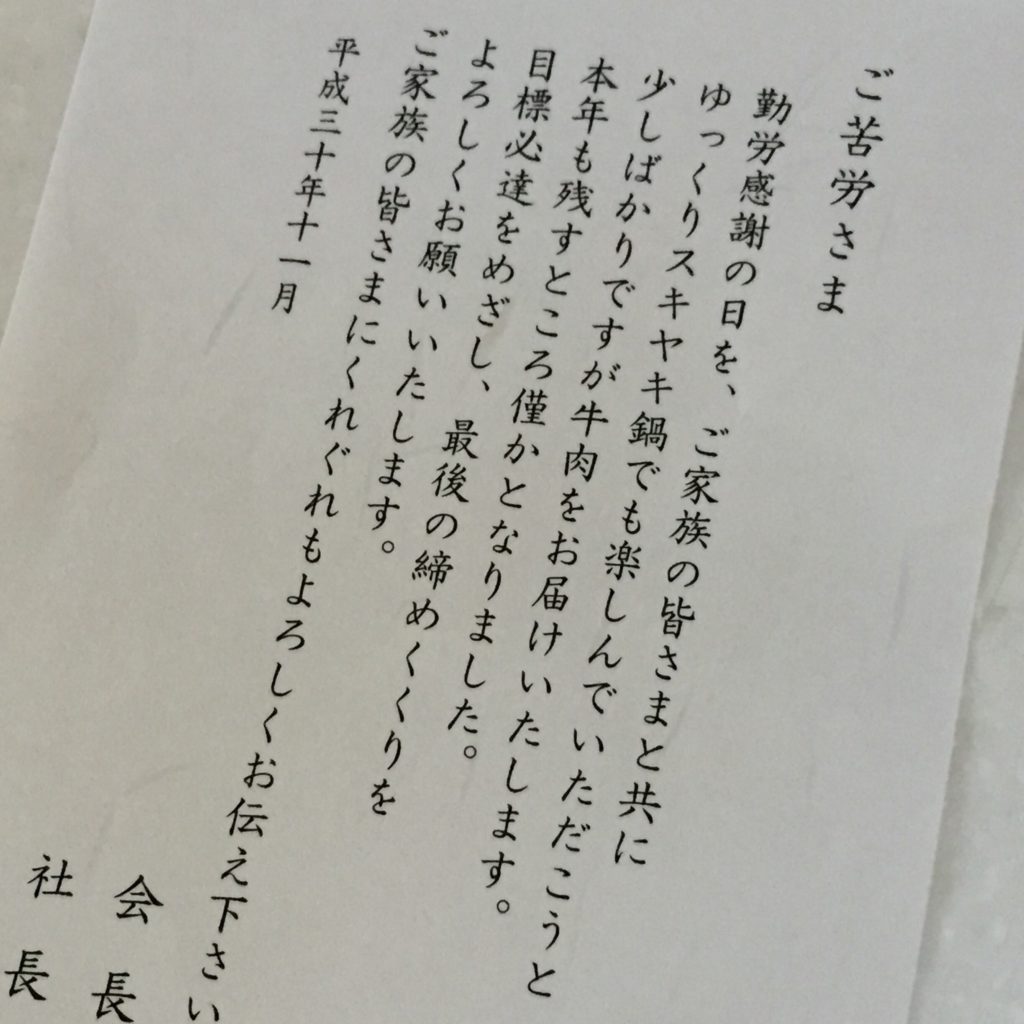 ご苦労さま
勤労感謝の日を、ご家族の皆さまと共に
ゆっくりスキヤキ鍋でも楽しんでいただこうと
少しばかりですが牛肉をお届けいたします。
本年も残すところ僅かとなりました。
目標必達をめざし、最後の締めくくりを
よろしくお願いいたします。
ご家族の皆さまにくれぐれもよろしくお伝え下さい
平成三十年十一月
会長
社長